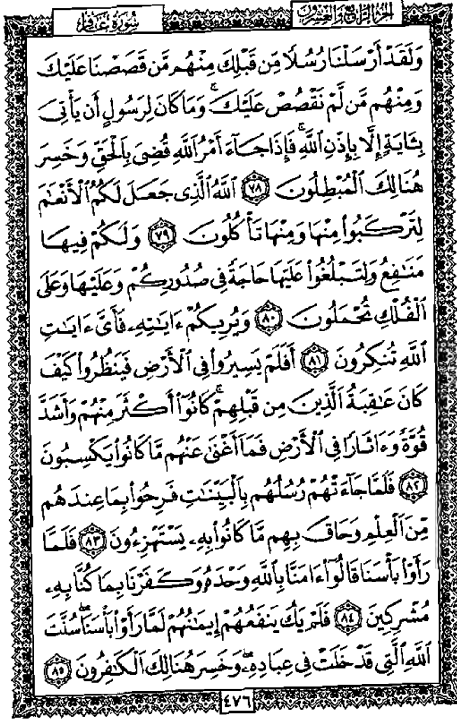 الجزء الرابع والعشرون
سورة غافر
وَلَقَدْ أَرْسَلْنَا رُسُلًا مِّن قَبْلِكَ مِنْهُم مَّن قَصَصْنَا عَلَيْكَ
وَمِنْهُم مَّن لَّمْ نَقْصُصْ عَلَيْكَ ۗ وَمَا كَانَ لِرَسُولٍ أَن يَأْتِيَ
بِـَٔايَةٍ إِلَّا بِإِذْنِ ٱللَّهِ ۚ فَإِذَا جَآءَ أَمْرُ ٱللَّهِ قُضِىَ بِٱلْحَقِّ وَخَسِرَ
هُنَالِكَ ٱلْمُبْطِلُونَ ٧٨ ٱللَّهُ ٱلَّذِى جَعَلَ لَكُمُ ٱلْأَنْعَٰمَ
لِتَرْكَبُوا۟ مِنْهَا وَمِنْهَا تَأْكُلُونَ ٧٩ وَلَكُمْ فِيهَا
مَنَٰفِعُ وَلِتَبْلُغُوا۟ عَلَيْهَا حَاجَةً فِى صُدُورِكُمْ وَعَلَيْهَا وَعَلَى
ٱلْفُلْكِ تُحْمَلُونَ ٨٠ وَيُرِيكُمْ ءَايَٰتِهِۦ فَأَىَّ ءَايَٰتِ
ٱللَّهِ تُنكِرُونَ ٨١ أَفَلَمْ يَسِيرُوا۟ فِى ٱلْأَرْضِ فَيَنظُرُوا۟ كَيْفَ
كَانَ عَٰقِبَةُ ٱلَّذِينَ مِن قَبْلِهِمْ ۚ كَانُوٓا۟ أَكْثَرَ مِنْهُمْ وَأَشَدَّ
قُوَّةً وَءَاثَارًا فِى ٱلْأَرْضِ فَمَآ أَغْنَىٰ عَنْهُم مَّا كَانُوا۟ يَكْسِبُونَ
٨٢ فَلَمَّا جَآءَتْهُمْ رُسُلُهُم بِٱلْبَيِّنَٰتِ فَرِحُوا۟ بِمَا عِندَهُم
مِّنَ ٱلْعِلْمِ وَحَاقَ بِهِم مَّا كَانُوا۟ بِهِۦ يَسْتَهْزِءُونَ ٨٣ فَلَمَّا
رَأَوْا۟ بَأْسَنَا قَالُوٓا۟ ءَامَنَّا بِٱللَّهِ وَحْدَهُۥ وَكَفَرْنَا بِمَا كُنَّا بِهِۦ
مُشْرِكِينَ ٨٤ فَلَمْ يَكُ يَنفَعُهُمْ إِيمَٰنُهُمْ لَمَّا رَأَوْا۟ بَأْسَنَا ۖ سُنَّتَ
ٱللَّهِ ٱلَّتِى قَدْ خَلَتْ فِى عِبَادِهِۦ ۖ وَخَسِرَ هُنَالِكَ ٱلْكَٰفِرُونَ ٨٥
٤٧٦